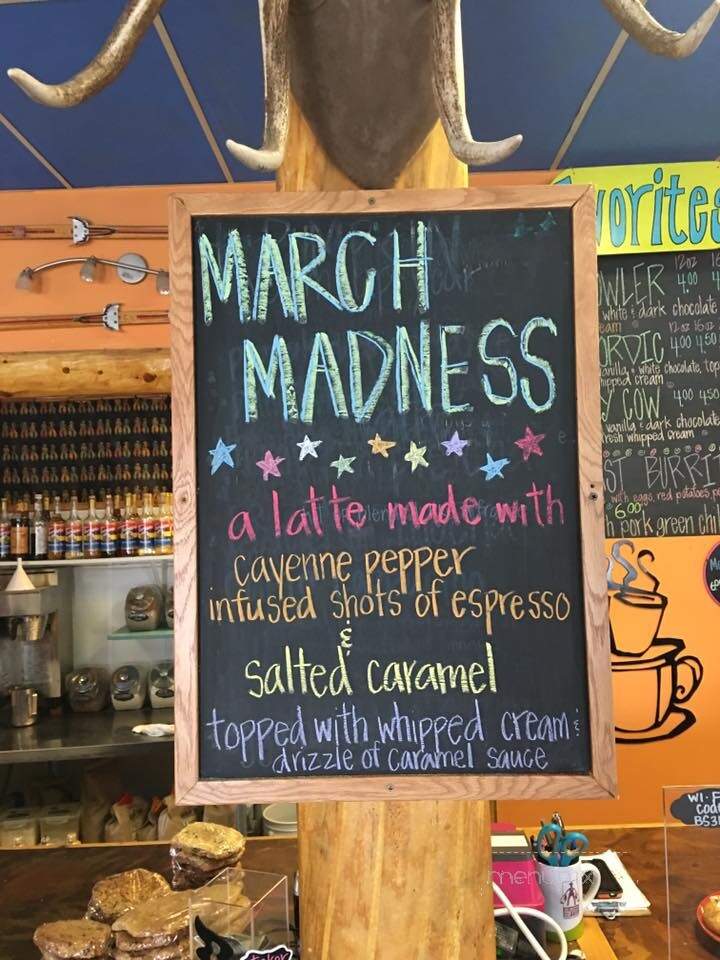 MARCH
MADNESS
a latte made with
cayenne pepper
infused shots of espresso
&
salted caramel
topped with whipped cream &
drizzle of caramel sauce
vorites
12oz
WLER 4.00
white & dark chocolate
12oz 16oz
RDIC 4.00 4.50
vanilla & white chocolate, top
whipped cream
COW 4.00 4.50
vanilla & dark chocolate
fresh whipped cream
ST BURRI
with eggs, red potatoes,
6.00
pork green chi
WI-F
BS3
menu